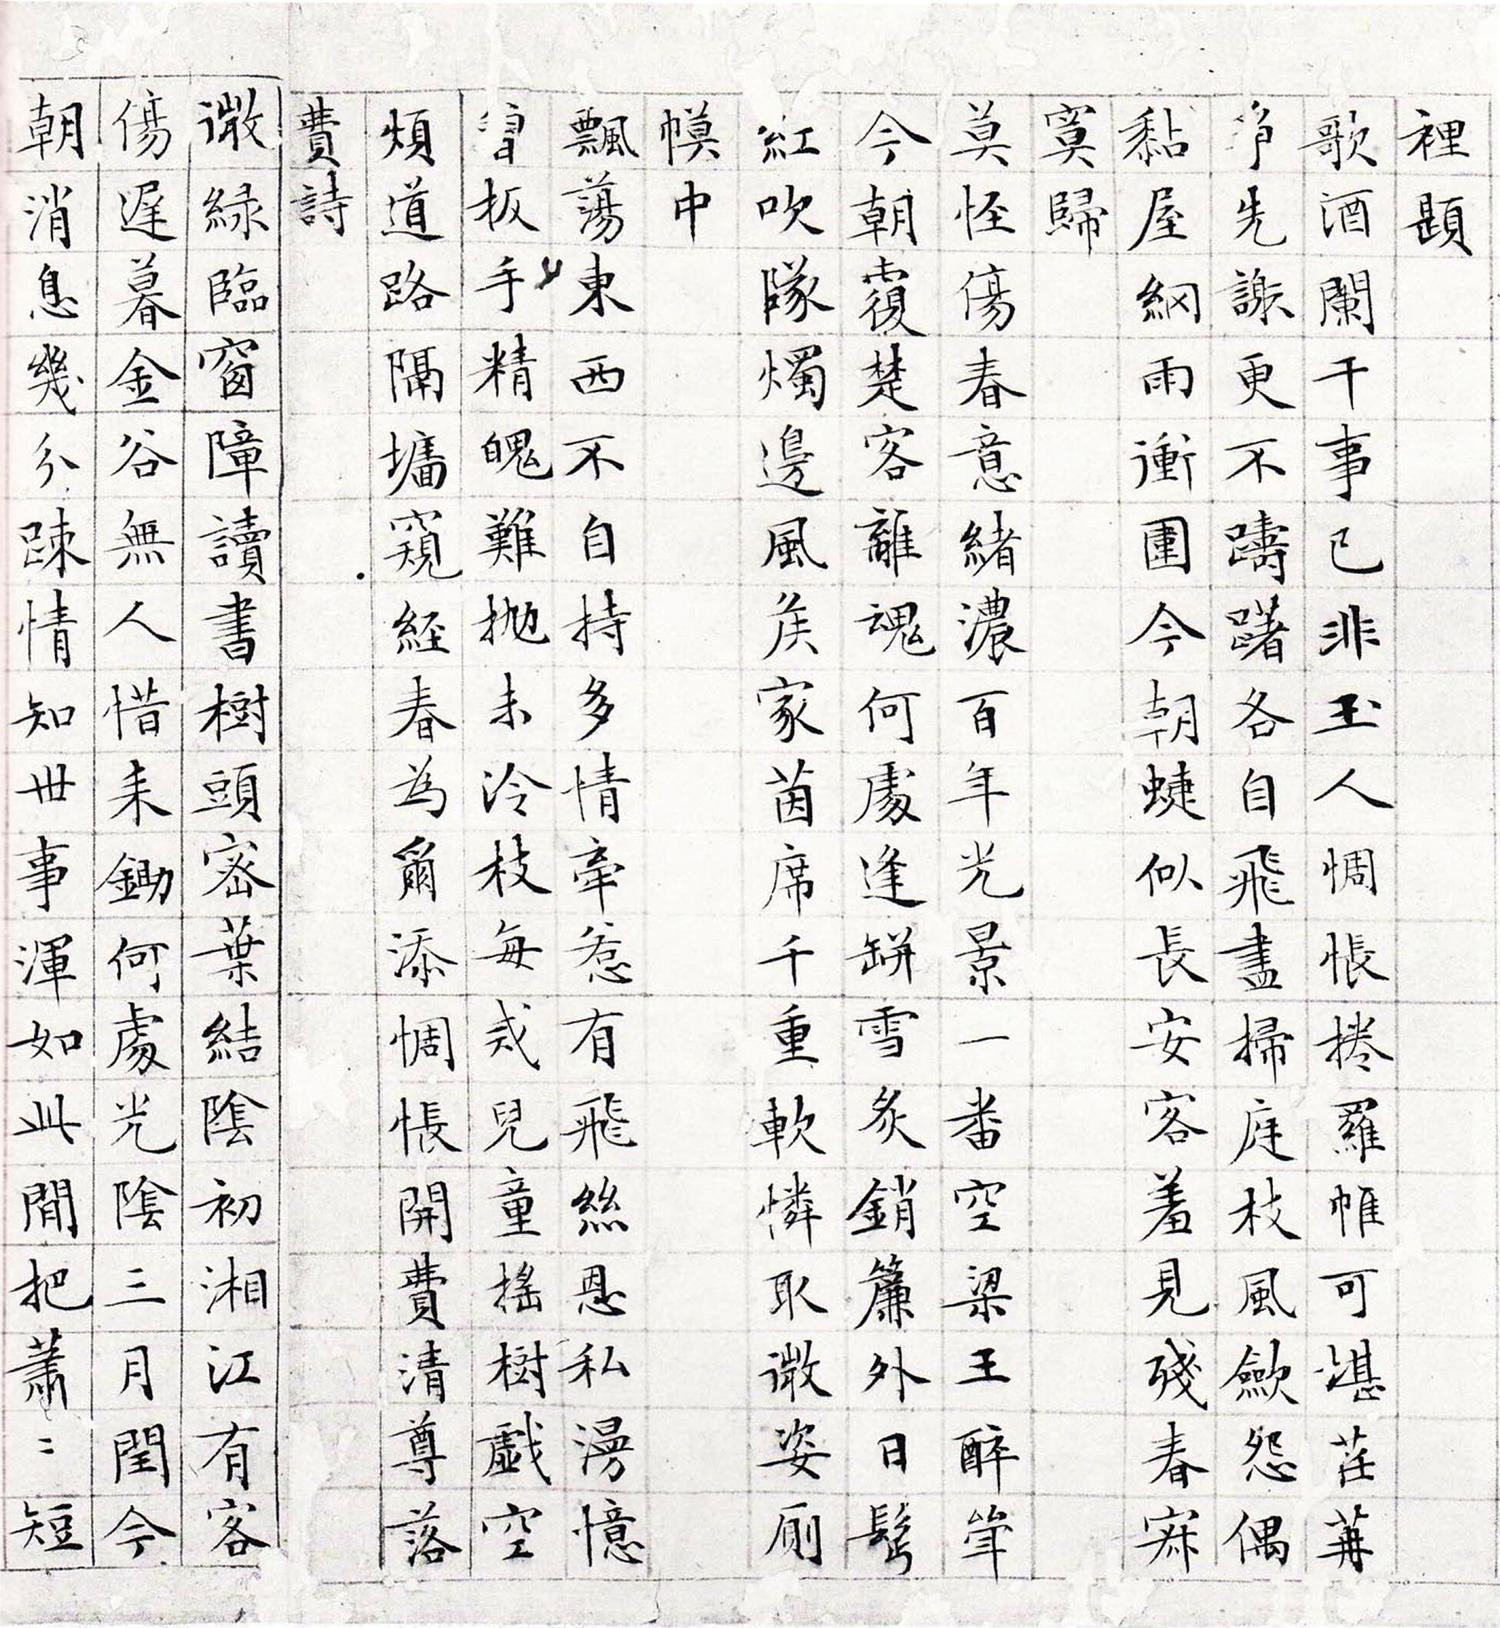 裡題
歌酒闌干事已非玉人惆悵捲羅帷可堪荏苒
爭先謝更不躊躇各自飛盡掃庭枝風歛怨偶
黏屋網雨衝圍今朝蜨似長安客羞見殘春寂
寞歸
莫怪傷春意緒濃百年光景一番空梁王醉
今朝覆楚客離魂何處逢缾雪炙銷簾外日鬂
紅吹隊燭邊風矦家茵席千重軟憐取微姿厠
幙中
飄蕩東西不自持多情牽惹有飛絲恩私漫憶
曾扳手精魄難拋未泠枝每戒兒童搖樹戲空
煩道路隔墉窺経春為爾添惆悵開費清尊落
費詩
微綠臨窗障讀書樹頭密葉結陰初湘江有客
傷遲暮金谷無人惜耒鋤何處光陰三月閏今
朝消息幾分踈情知世事渾如此閒把蕭〻短